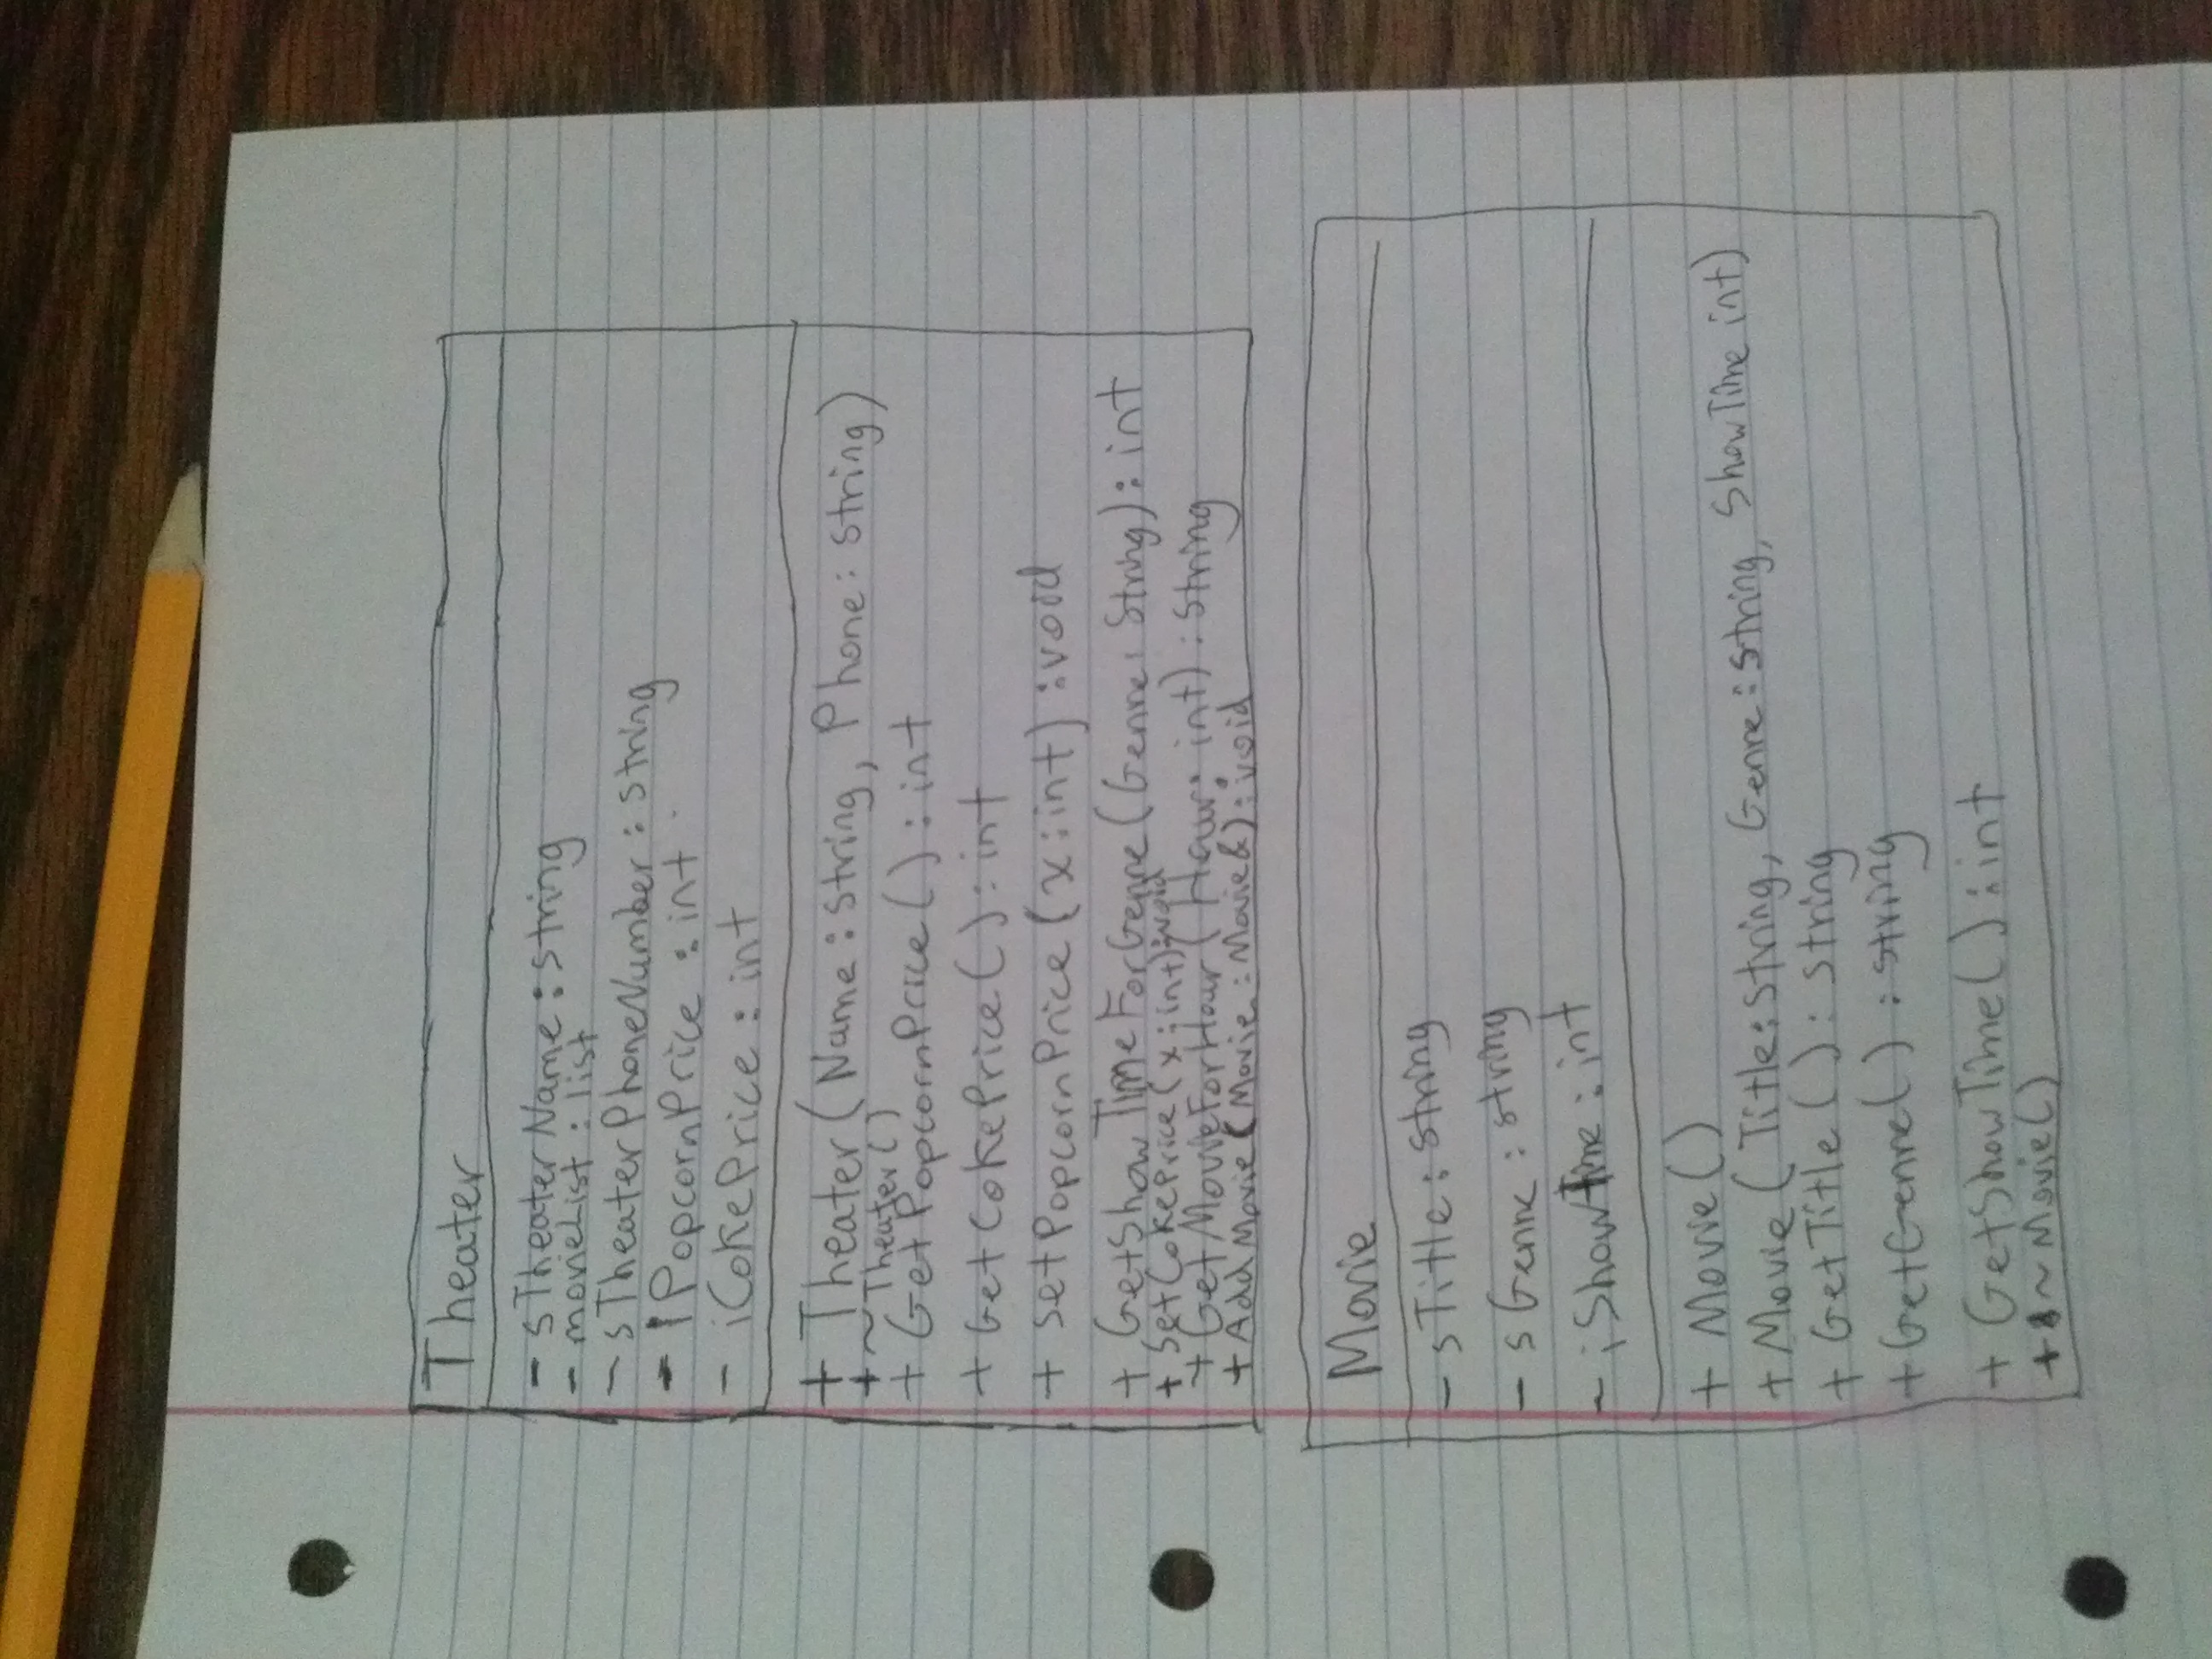 Theater
- sTheaterName : string
- movieList : list
- sTheaterPhoneNumber : string
- iPopcornPrice : int
- iCokePrice : int
+ Theater (Name : string, Phone : string)
+ ~Theater()
+ GetPopcornPrice() : int
+ GetCokePrice() : int
+ SetPopcornPrice (x : int) : void
+ GetShowTimeForGenre (Genre : String) : int
+ SetCokePrice (x : int) : void
+ GetMovieForHour (Hour : int) : String
+ AddMovie (Movie : Movie&) : void
Movie
- sTitle : string
- sGenre : string
- iShowTime : int
+ Movie()
+ Movie (Title : String, Genre : String, ShowTime int)
+ GetTitle() : String
+ GetGenre() : string
+ GetShowTime() : int
+ ~Movie()